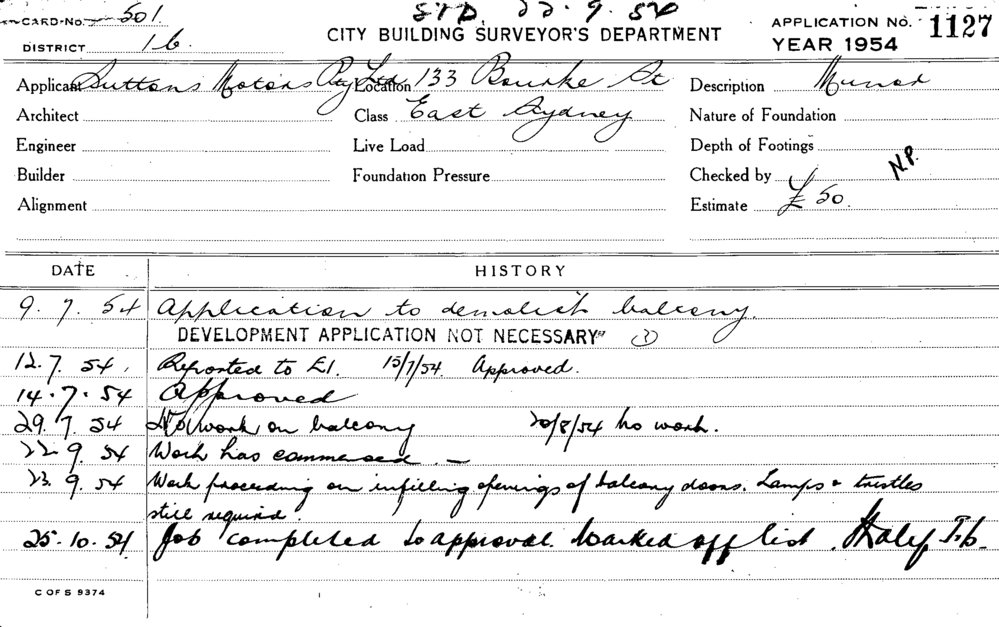 CARD-No. 501
STD. 22.9.54
APPLICATION No. 1127
DISTRICT 16
CITY BUILDING SURVEYOR'S DEPARTMENT
YEAR 1954
Applicant Suttons Motors Pty Ltd Location 133 Bourke St Description Minor
Architect Class East Sydney Nature of Foundation
Engineer Live Load Depth of Footings
Builder Foundation Pressure Checked by N.P.
Alignment Estimate £50.
DATE HISTORY
9. 7. 54 Application to demolish balcony.
DEVELOPMENT APPLICATION NOT NECESSARY (3)
12.7. 54. Reported to E1. 15/7/54 Approved.
14.7.54 Approved
29.7.54 No work on balcony 20/8/54 no work.
22.9.54 Work has commenced. —
23.9.54 Work proceeding on infilling openings of balcony doors. Lamps & trestles
still required.
25.10.54 Job completed to approval. Marked off list.
C OF S 9374